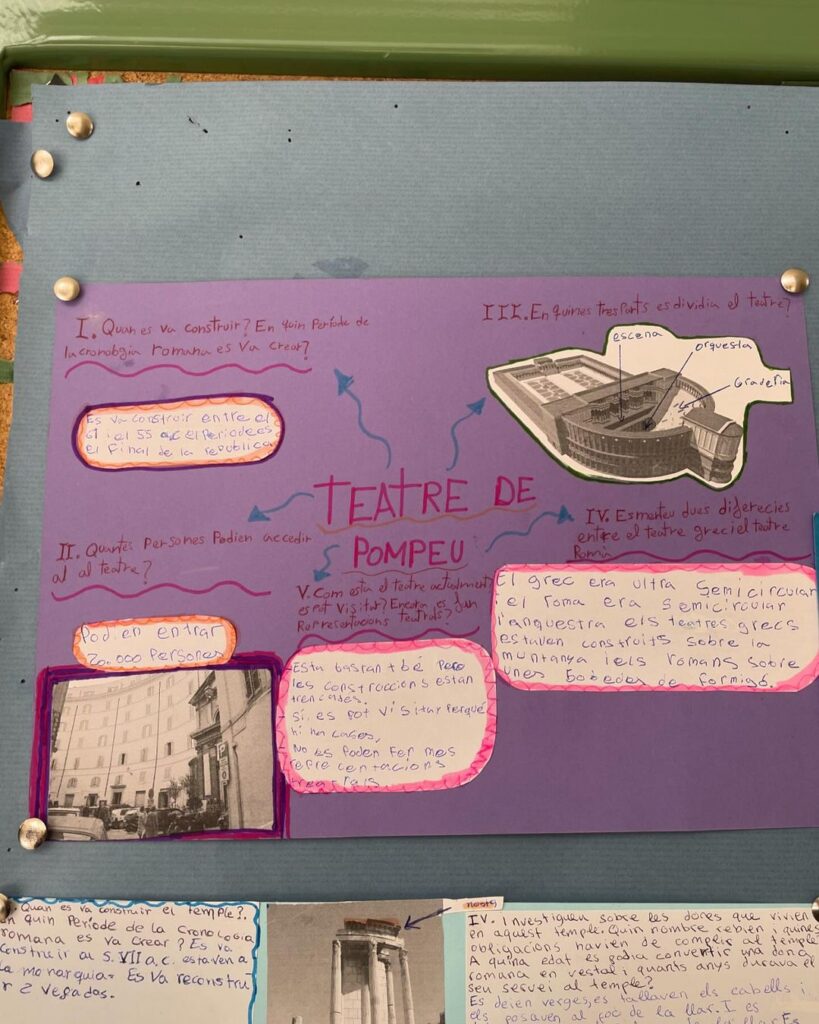 I. Quan es va construir? En quin Període de
la cronologia romana es va crear?
Es va construir entre el
61 i el 55 a.C el Periode es
el final de la republica
TEATRE DE
POMPEU
II. Quantes Persones Podien accedir
al al teatre?
Podien entrar
20.000 Persones
III. En quines tres parts es dividia el teatre?
escena
orquesta
Graderia
IV. Esmenteu dues diferecies
entre el teatre grec i el teatre
Romà
El grec era ultra Semicircular
i el roma era semicircular
l'anquestra els teatres grecs
estaven construits sobre la
muntanya i els romans sobre
unes bobedes de formigó.
V. Com esta el teatre actualment
es pot visitar? Encara es fan
Representacions teatrals?
Esta bastant bé Pero
les construccions estan
trencades.
Si, es pot visitar Perqué
hi ha cases,
No es Poden Fer mes
repre centacions
Quan es va construir el temple?.
quin Període de la Cronologia
romana es va crear? Es va
construir al S. VII a,c. estaven a
la monarquia. Es va reconstru
ir 2 vegades.
IV. Investigueu sobre les dones que vivien
en aquest temple. Quin nombre rebien i quines
obligacions havien de complir al temple
A quina edat es podia convertir una dona
romana en vestal i quants anys durava el
seu servei al temple?
Es deien verges, es tallaven els cabells i
els posaven al foc de la llar. I es